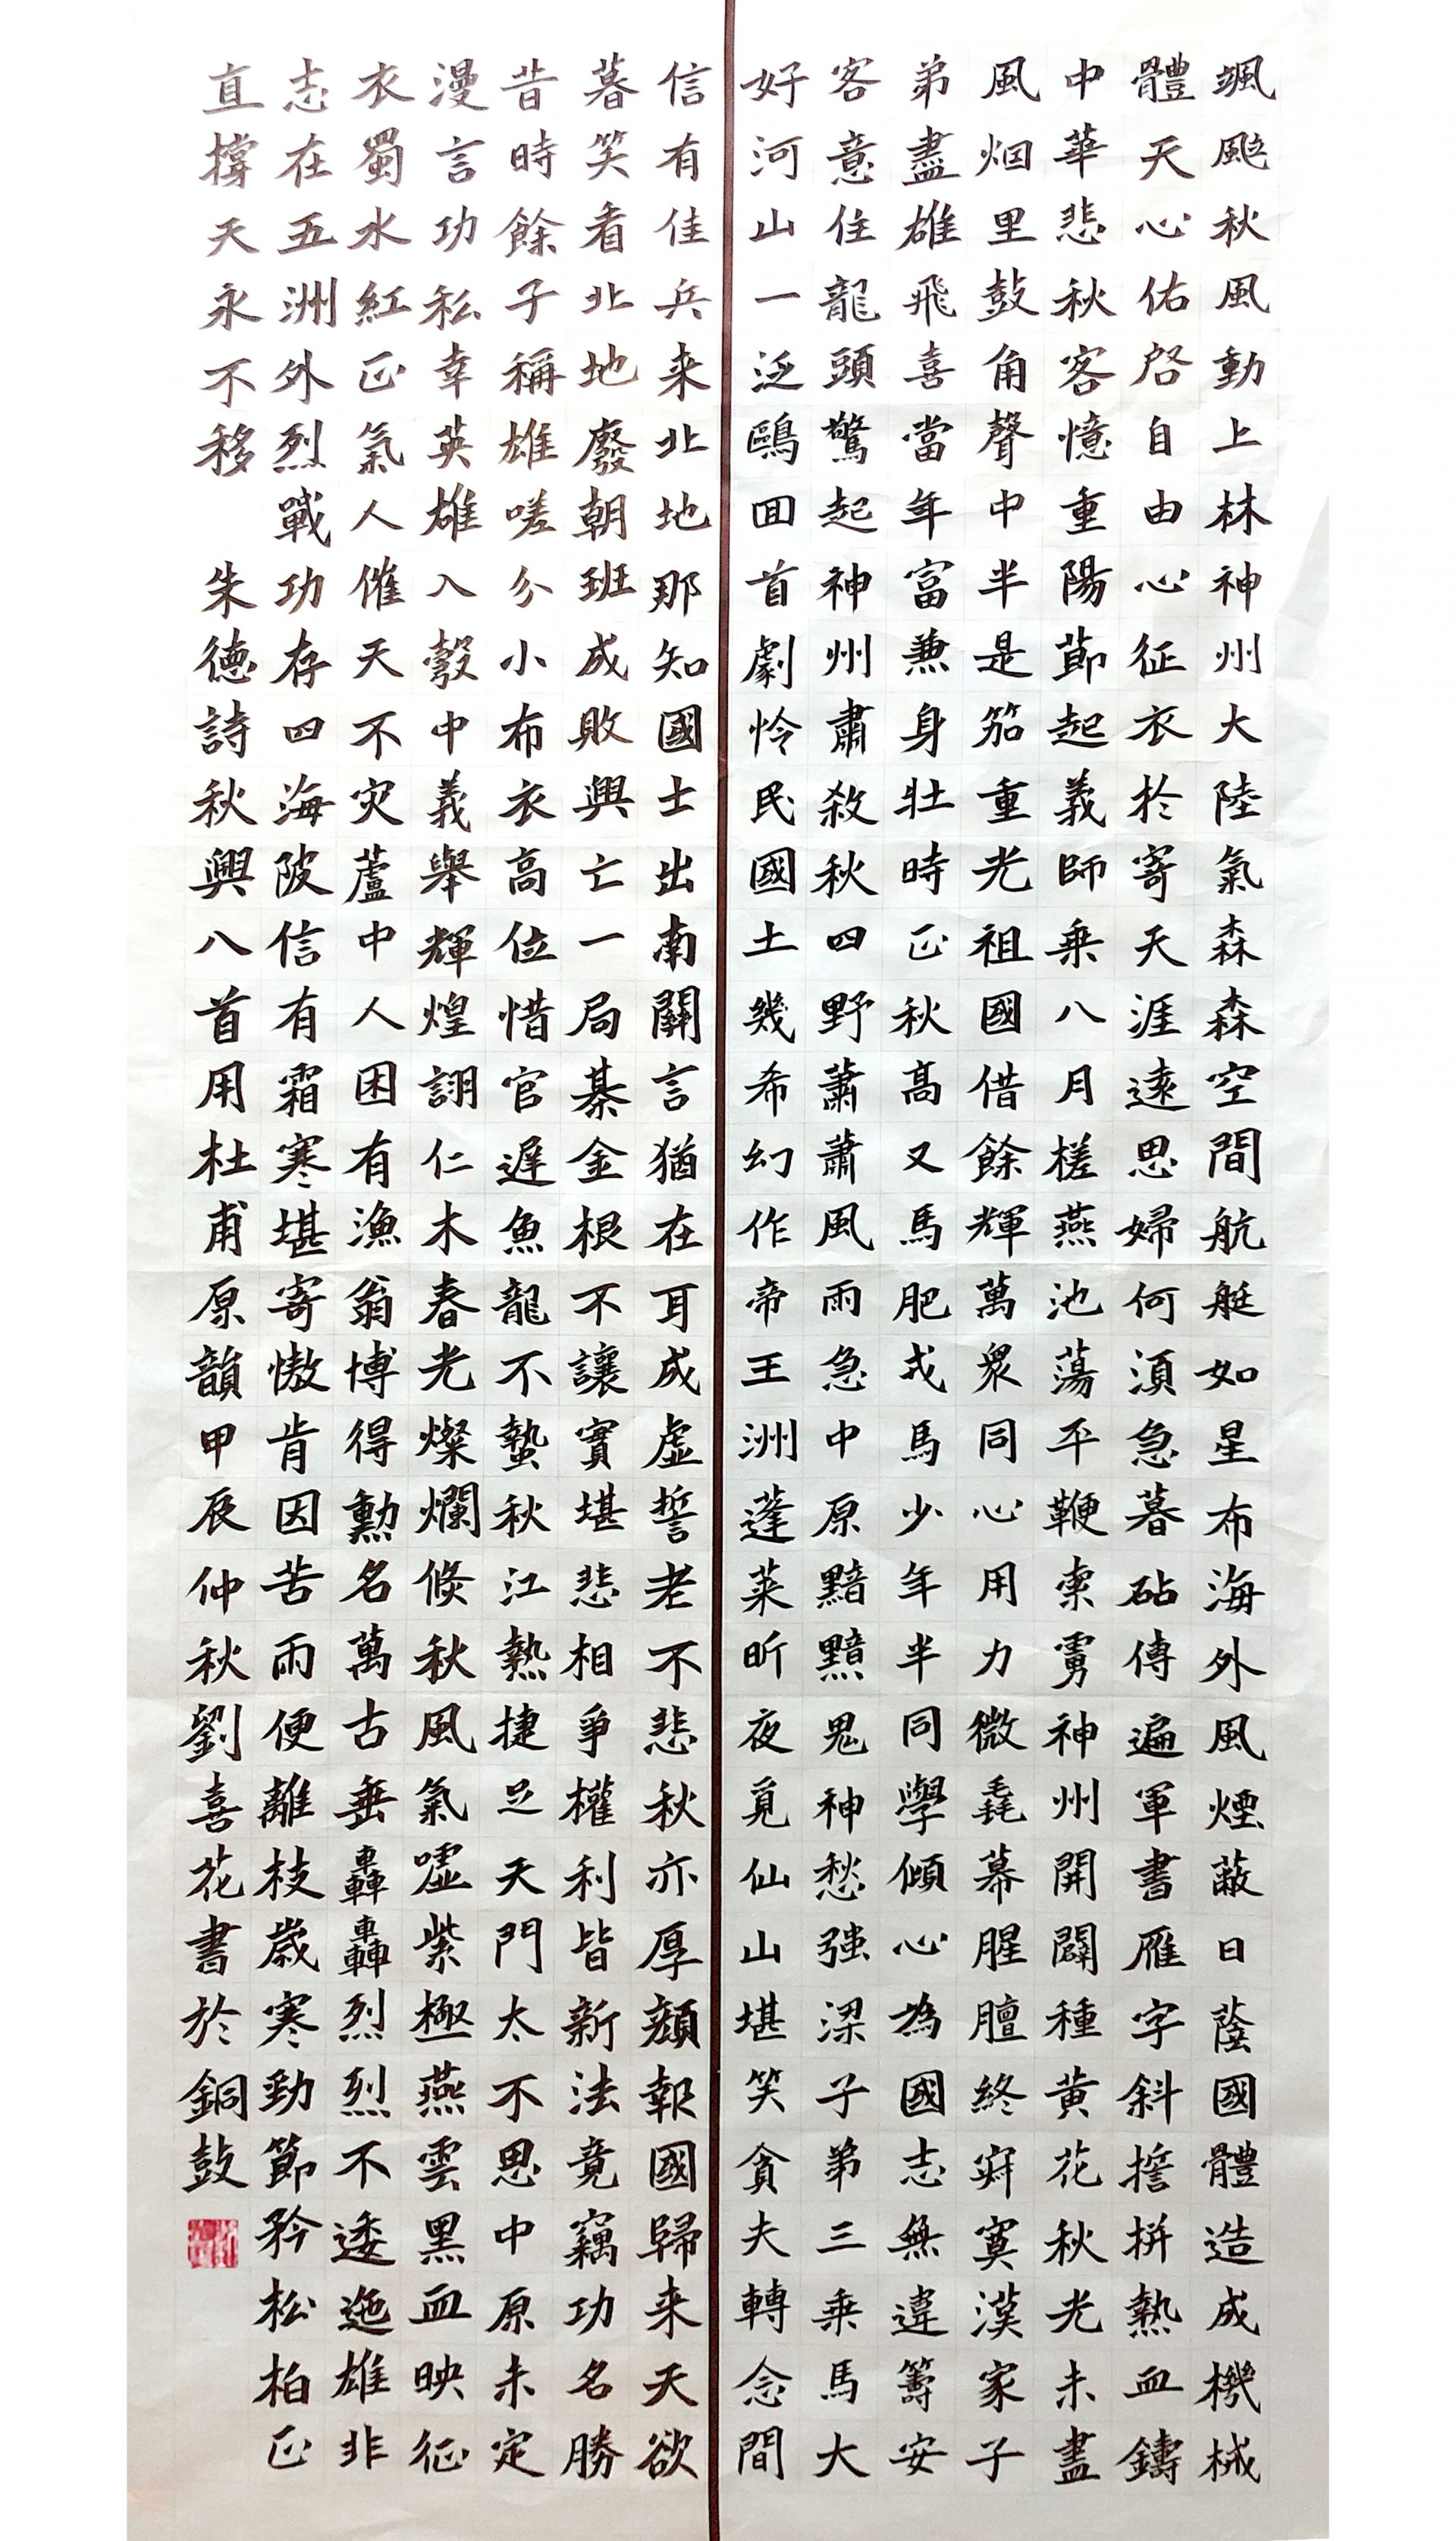 颯颭秋風動上林神州大陸氣森森空間航艇如星布海外風煙蔽日蔭國體造成機械
體天心佑啓自由心征衣於寄天涯遠思婦何須急暮砧傳遍軍書雁字斜擔拼熱血鑄
中華悲秋客憶重陽節起義師乘八月槎燕池蕩平鞭索虜神州開闢種黃花秋光未盡
風烟里鼓角聲中半是笳重光祖國借餘輝萬眾同心用力微毳幕腥膻終寂寞漢家子
弟盡雄飛喜當年富兼身壯時正秋高又馬肥戎馬少年半同學傾心為國志無違籌安
客意住龍頭驚起神州肅殺秋四野蕭蕭風雨急中原黯黯鬼神愁强梁子弟三乘馬大
好河山一泛鷗回首劇怜民國土幾希幻作帝王洲蓬萊昕夜覓仙山堪笑貪夫轉念間
信有佳兵来北地那知國士出南關言猶在耳成虛誓老不悲秋亦厚顏報國歸来天欲
暮笑看北地廢朝班成敗興亡一局棊金根不讓實堪悲相爭權利皆新法竟竊功名勝
昔時餘子稱雄嗟分小布衣高位惜官遲魚龍不蟄秋江熱捷足天門太不思中原未定
漫言功私幸英雄入彀中義舉輝煌詡仁木春光燦爛倏秋風氣噓紫極燕雲黑血映征
衣蜀水紅正氣人催天不灾蘆中人困有漁翁博得勳名萬古垂轟轟烈烈不逶迤雄非
志在五洲外烈戰功存四海陂信有霜寒堪寄傲肯因苦雨便離枝歲寒勁節矜松柏正
直撐天永不移 朱德詩秋興八首用杜甫原韻甲辰仲秋劉喜花書於銅鼓